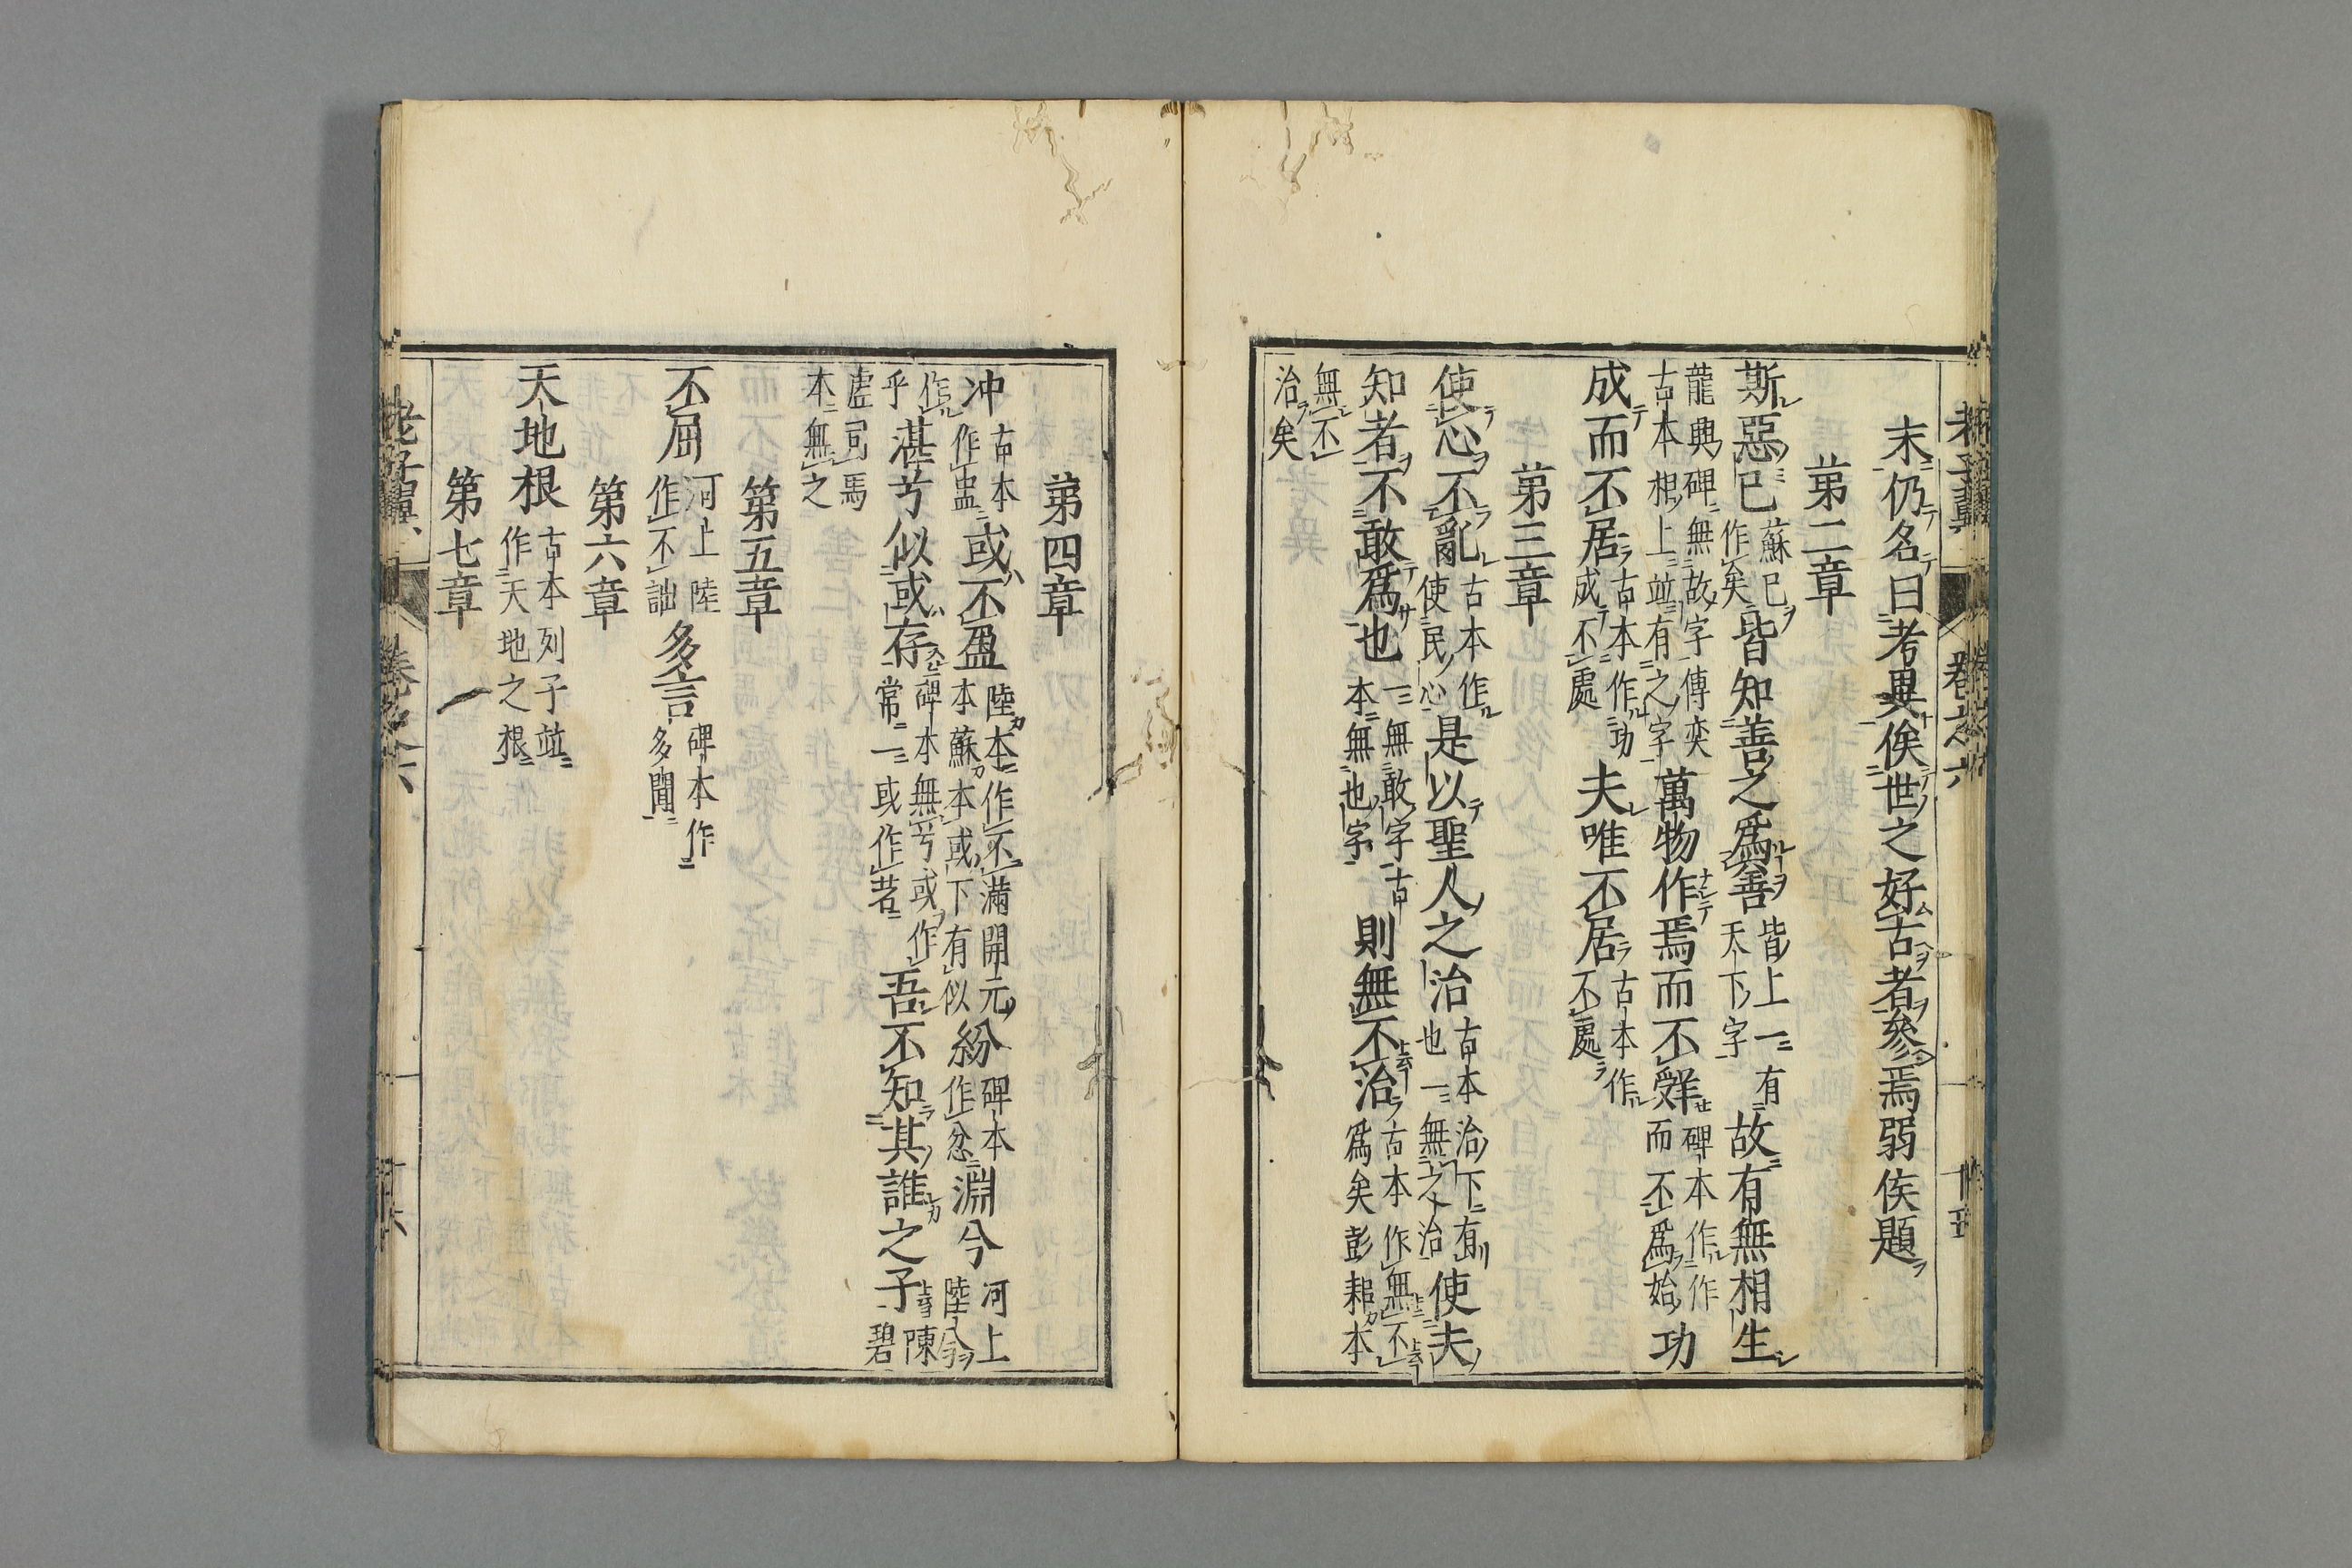 末仍名曰考異俟世之好古者參焉弱侯題
第二章
斯惡已
蘇已
作矣
皆知善之爲善
皆上一有
天下字
故有無相生
龍興碑無故字傳奕
古本相上竝有之字
萬物作焉而不辤
碑本作作
而不爲始
功
成而不居
古本作功
成不處
夫唯不居
古本作
不處
第三章
使心不亂
古本作
使民心
是以聖人之治
古本治下有
也一無之治
使夫
知者不敢爲也
一無敢字古
本無也字
則無不治
古本作無不
爲矣彭耜本
無不
治矣
第四章
冲
古本
作盅
或不盈
陸本作不滿開元
本蘇本或下有似
紛
碑本
作忿
淵兮
河上
陸兮
作
乎
湛兮似或存
碑本無兮或作
常一或作若
吾不知其誰之子
陳
碧
虛司馬
本無之
第五章
不屈
河上陸
作不詘
多言
碑本作
多聞
第六章
天地根
古本列子竝
作天地之根
第七章
卷之六